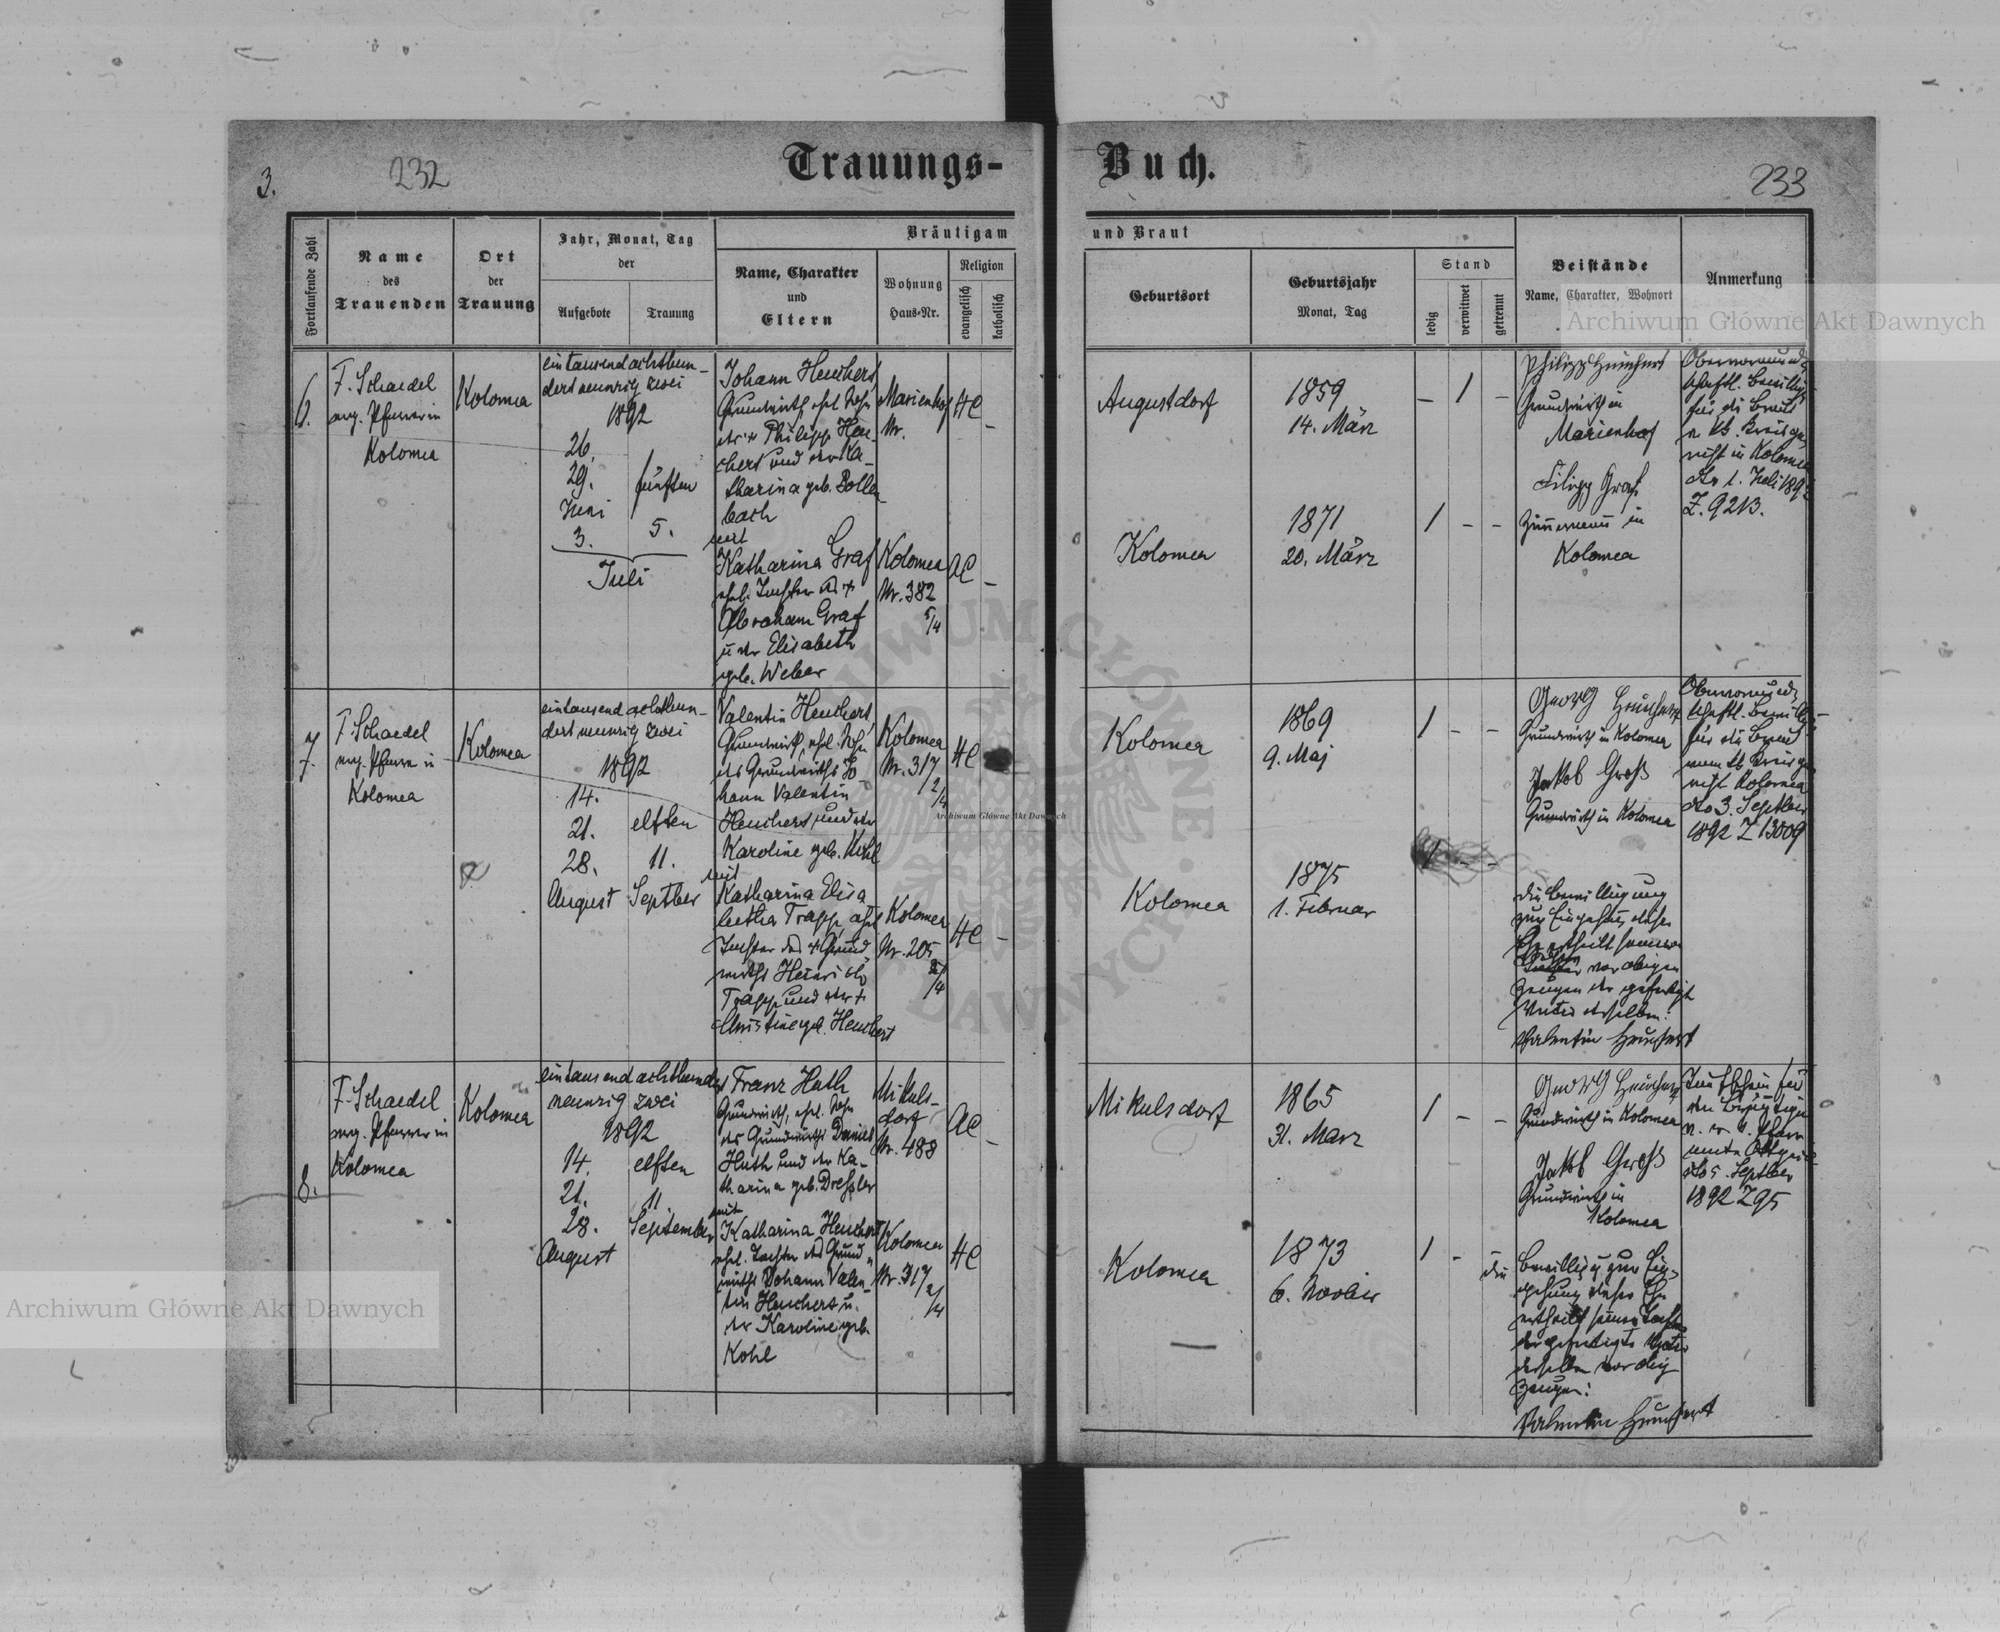 3.
232
Trauungs-
Buch.
233
Fortlaufende Zahl
Name
des
Trauenden
Ort
der
Trauung
Jahr, Monat, Tag
der
Aufgebote
Trauung
Bräutigam
und Braut
Name, Charakter
und
Eltern
Wohnung
Haus-Nr.
Religion
evangelisch
katholisch
Geburtsort
Geburtsjahr
Monat, Tag
Stand
ledig
verwitwet
getrennt
Beistände
Name, Charakter, Wohnort
Anmerkung
Archiwum Główne Akt Dawnych
6.
F. Schaedel
evg. Pfarrer in
Kolomea
Kolomea
eintausendachthun-
dertneunzig zwei
1892
26.
29.
Juni
3.
fünften
5.
Juli
Johann Heuchert
Grundwirth, ehel. Sohn
des + Philipp Heu-
chert und der Ka-
tharina geb. Bolle
bach
mit
Katharina Graf
ehel. Tochter des +
Abraham Graf
u der Elisabeth
geb. Weber
Marienhof
Nr.
HC
-
Kolomea
Nr. 382
5/4
AC
-
Augustdorf
1859
14. März
- 1 -
Kolomea
1871
20. März
1 - -
Philipp Heuchert
Grundwirth in
Marienhof
Filipp Graf
Zimmermann in
Kolomea
Obervormund-
schaftl. Bewillig
für die Braut
v. kk. Kreisge
richt in Kolomea
dto 1. Juli 1892
Z. 9213.
7.
F. Schaedel
evg. Pfarrer in
Kolomea
Kolomea
eintausend achthun-
dert neunzig zwei
1892
14.
21.
28.
August
elften
11.
Septber
Valentin Heuchert,
Grundwirth, ehel. Sohn
des Grundwirths Jo-
hann Valentin
Heuchert und der
Karoline geb. Kohl
mit
Katharina Elisa
betha Trapp, ehel
Tochter des + Grund
wirths Heinrich
Trapp und der +
Christine geb. Heuchert
Kolomea
Nr. 317
2/4
HC
Kolomea
Nr. 205
2/4
HC -
Kolomea
1869
9. Maj
1 - -
Kolomea
1875
1. Februar
1 - -
Georg Heuchert
Grundwirth in Kolomea
Jakob Groß
Grundwirth in Kolomea
die Bewilligung
zur Eingehung dieser
Ehe ertheilt seinem
Sohne vor obigen
Zeugen der gefertigte
Vater desselben:
Valentin Heuchert
Obervormund-
schaftl. Bewillig
für die Braut
vom kk Kreisge
richt Kolomea
dto 3. Septber
1892 Z 13009
8.
F. Schaedel
evg. Pfarrer in
Kolomea
Kolomea
eintausend achthundert
neunzig zwei
1892
14.
21.
28.
August
elften
11.
September
Franz Huth
Grundwirth, ehel. Sohn
des Grundwirths Daniel
Huth und der Ka-
tharina geb. Dreßler
mit
Katharina Heuchert
ehel. Tochter des Grund
wirths Johann Valen-
tin Heuchert u.
der Karoline geb.
Kohl
Mikuls-
dorf
Nr. 488
AC
-
Kolomea
Nr. 317
2/4
HC
Mikulsdorf
1865
31. März
1 - -
Kolomea
1873
6. Novber
1 -
Georg Heuchert
Grundwirth in Kolomea
Jakob Groß
Grundwirth in
Kolomea
die Bewilligg zur Ein-
gehung dieser Ehe
ertheilt seiner Tochter
der gefertigte Vater
derselben vor obig
Zeugen:
Valentin Heuchert
Taufschein für
den Bräutigam
v. r. k. Pfarr
amte Ottynia
dto 5. Septber
1892 Z 95
Archiwum Główne Akt Dawnych
Archiwum Główne Akt Dawnych
ARCHIWUM GŁÓWNE AKT DAWNYCH